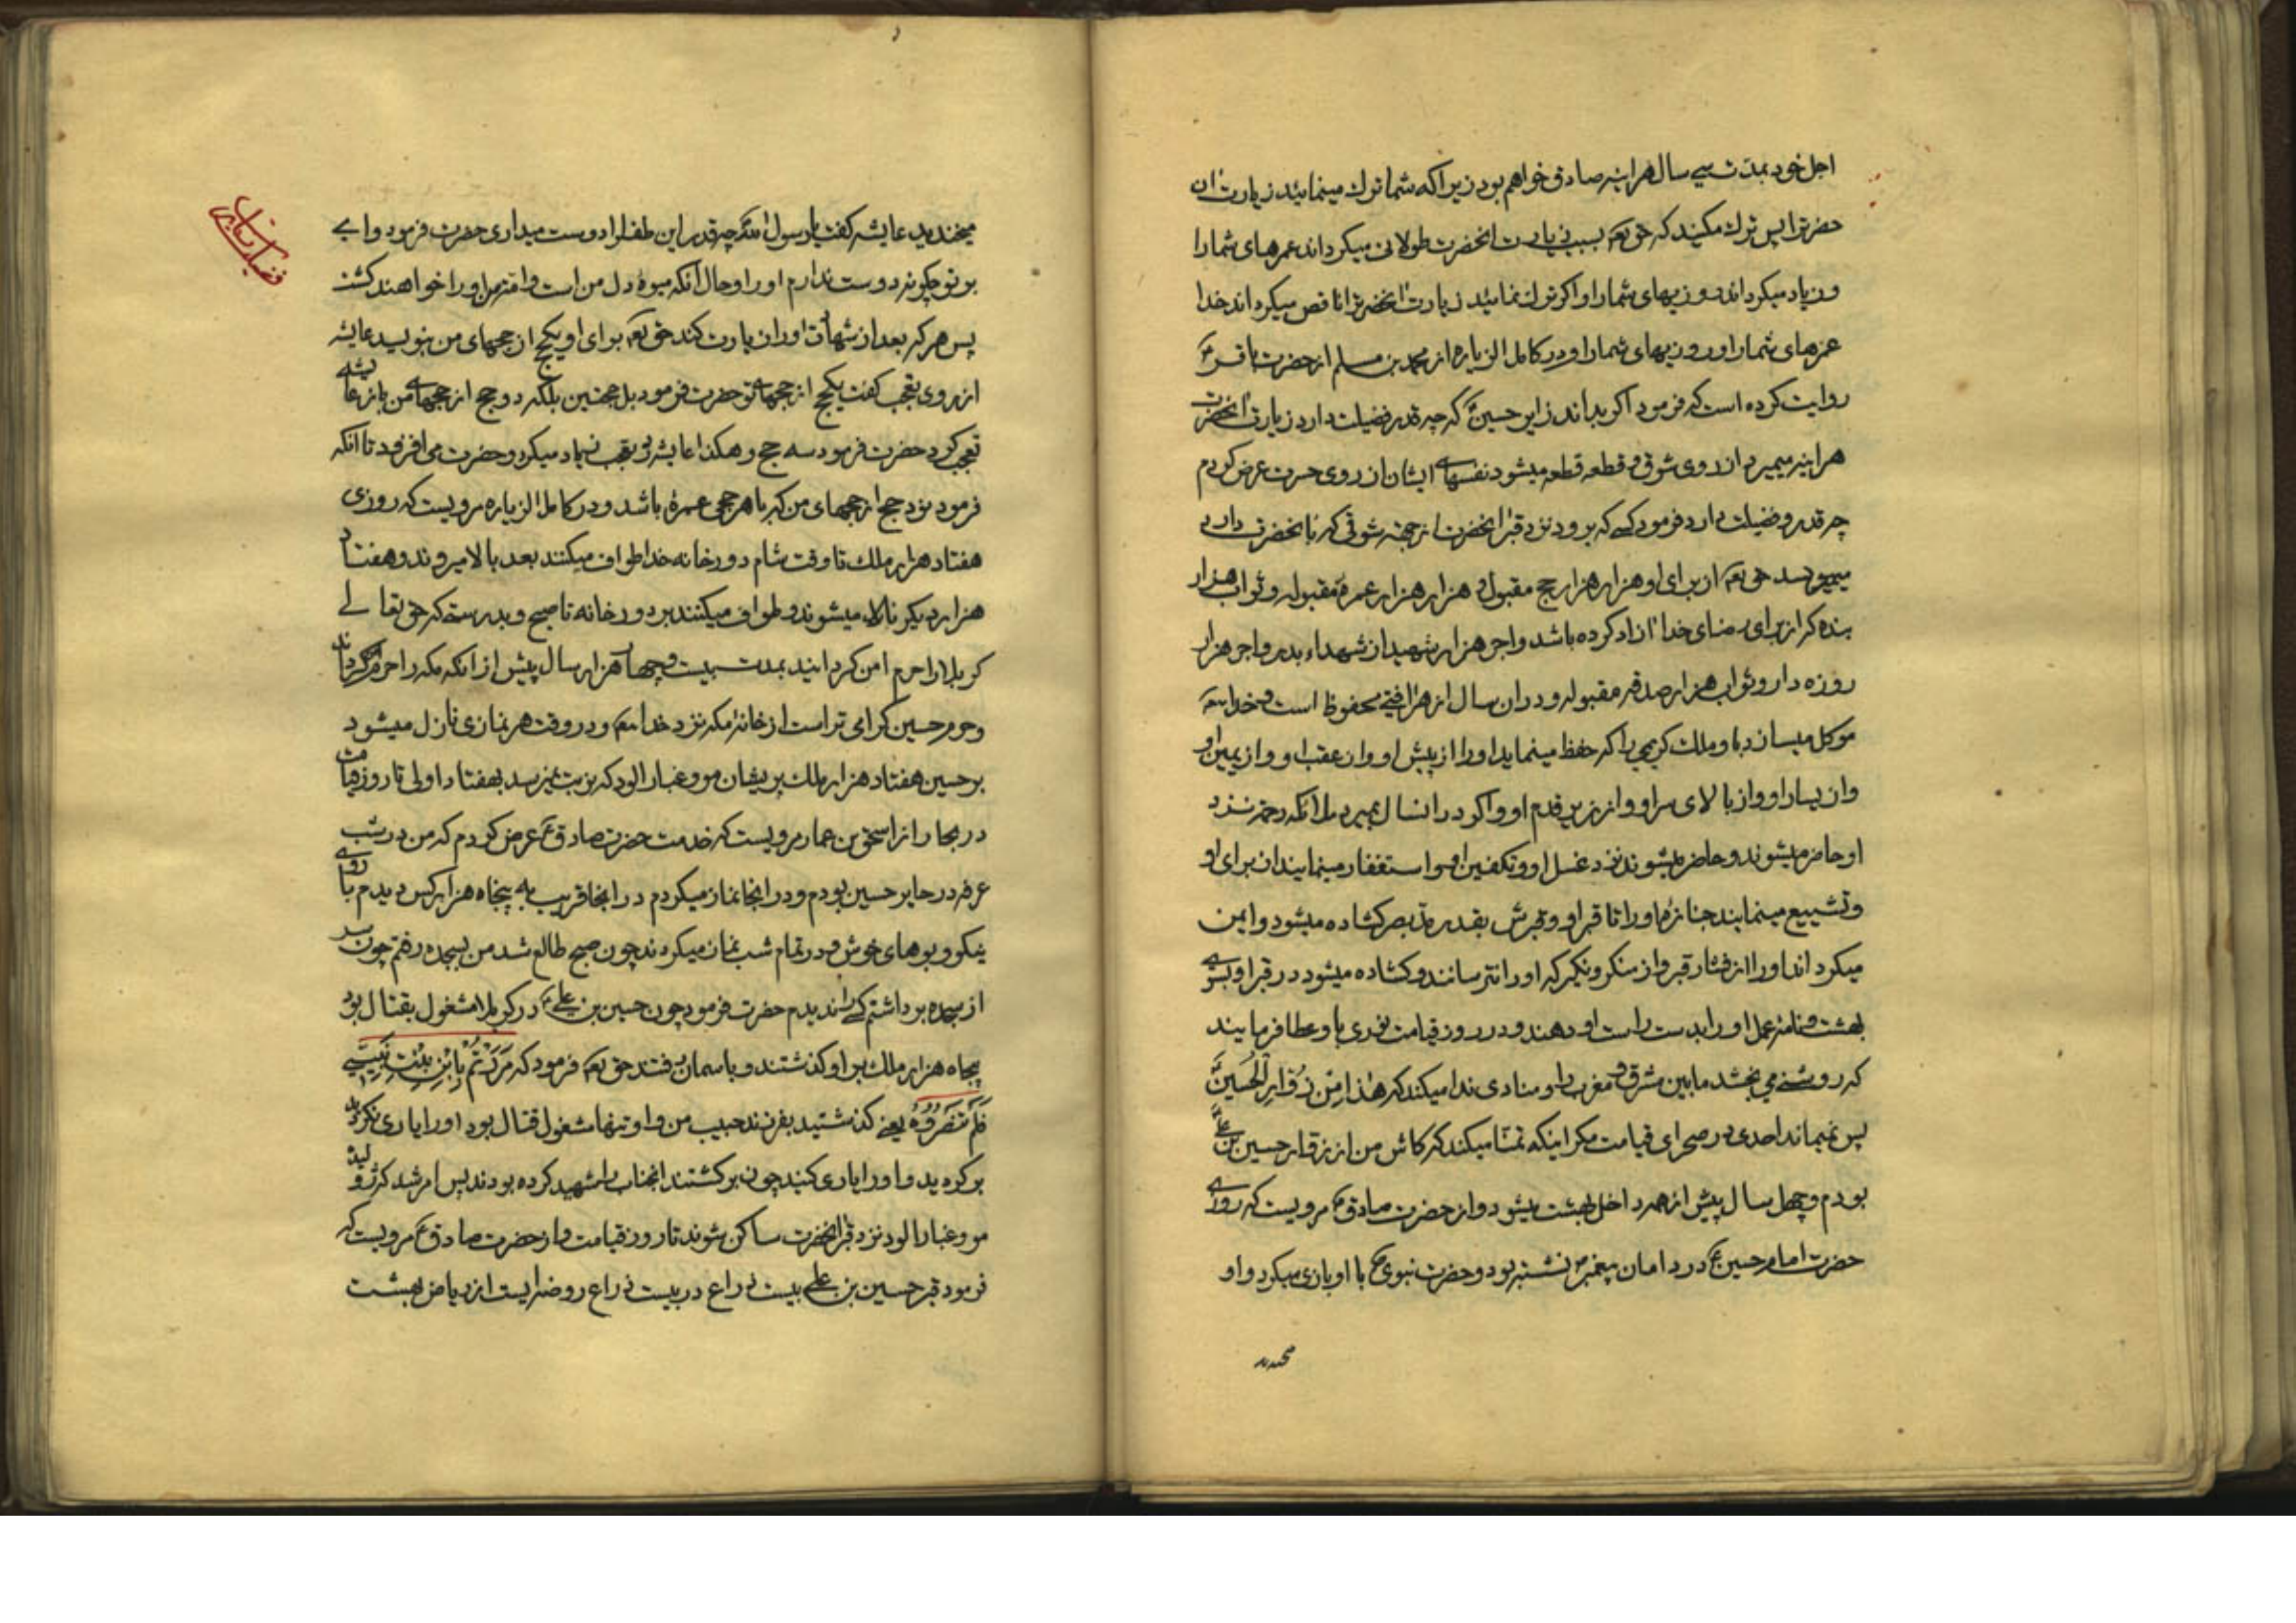 اجل خود بمدت سی سال هراینه صادق خواهم بود زیرا که شما ترک مینمائید زیارت ان
حضرترا پس ترک مکنید که حق تعه بسبب زیارت انحضرت طولانی میکرداند عمرهای شمارا
و زیاد میکرداند روزیهای شمارا و اکر ترک نمائید زیارت انحضرترا ناقص میکرداند خدا
عمرهای شمارا و روزیهای شمارا و در کامل الزیاره از محمد بن مسلم از حضرت باقر ع
روایت کرده است که فرمود اکر بداند زایر حسین ع که چه قدر فضیلت دارد زیارت انحضرت
هراینه میمیرد از روی شوق و قطعه قطعه میشود نفسهای ایشان از روی حسرت عرض کردم
چه قدر فضیلت دارد فرمود کسی که برود نزد قبر انحضرت از جهة شوقی که بانحضرت دارد
مینویسد حق تعه از برای او هزار هزار حج مقبول و هزار هزار عمرهٔ مقبوله و ثواب هزار
بنده که از برای رضای خدا ازاد کرده باشد و اجر هزار شهید از شهداء بدر و اجر هزار
روزه دار و ثواب هزار صدقه مقبوله و در ان سال از هر افتی محفوظ است و خدا تعه
موکل میسازد باو ملک کریمی را که حفظ مینماید او را از پیش او و از عقب او و از یمین او
و از یسار او و از بالای سر او و از زیر قدم او و اکر در انسال بمیرد ملائکه رحمة نزد
او حاضر میشوند و حاضر میشوند نزد غسل او و تکفین او و استغفار مینمایند از برای او
و تشییع مینمایند جنازهٔ او را تا قبر او و قبرش بقدر مد بصر کشاده میشود و ایمن
میکرداند او را از فشار قبر و از منکر و نکیر که او را نترسانند و کشاده میشود در قبر او بسوی
بهشت و نامهٔ عمل او را بدست راست او دهند و در روز قیامت نوری باو عطا فرمایند
که روشنی می بخشد مابین مشرق و مغرب را و منادی ندا میکند که هٰذا مِن زُوّارِ الحُسَینِ ع
پس نمیماند احدی در صحرای قیامت مکر اینکه تمنا میکند که کاش من از زوار حسین بن علی ع
بودم و چهل سال پیش از همه داخل بهشت میشود و از حضرت صادق ع مرویست که روزی
حضرت امام حسین ع در دامان پیغمبر ص نشسته بود و حضرت نبوی ص با او بازی میکرد و او
میخندید
میخندید عایشه کفت یا رسول الله چه قدر این طفل را دوست میداری حضرت فرمود وای
بر تو چکونه دوست ندارم او را و حال آنکه میوهٔ دل من است و امت من او را خواهند کشت
پس هر که بعد از شهادت او را زیارت کند حق تعه برای او یکحج از حجهای من بنویسد عایشه
از روی تعجب کفت یکحج از حجهای تو حضرت فرمود بل حجتین بلکه دو حج از حجهای من باز عایشه
تعجب کرد حضرت فرمود سه حج و هکذا عایشه تعجب زیاد میکرد و حضرت می افزود تا انکه
فرمود نود حج از حجهای من که با هر حجی عمرهٔ باشد و در کامل الزیاره مرویست که روزی
هفتاد هزار ملک تا وقت شام دور خانه خدا طواف میکنند بعد بالا میروند و هفتاد
هزار دیکر نازل میشوند و طواف میکنند بر دور خانه تا صبح و بدرستی که حق تعالی
کربلا را حرم امن کردانید بمدت بیست و چهار هزار سال پیش از انکه مکه را حرم کرداند
و حرم حسین کرامی تر است از خانهٔ مکه نزد خدا تعه و در وقت هر نمازی نازل میشود
بر حسین هفتاد هزار ملک پریشان مو و غبار الود که نوبت نمیرسد بهفتاد اولی تا روز قیامت
در بحار از اسحق بن عمار مرویست که خدمت حضرت صادق ع عرض کردم که من در شب
عرفه در حایر حسین بودم و در انجا نماز میکردم در انجا قریب به پنجاه هزار کس دیدم با روی
نیکو و بوهای خوش و در تمام شب نماز میکردند چون صبح طالع شد من بسجده رفتم چون سر
از سجده برداشتم کسی را ندیدم حضرت فرمود چون حسین بن علی ع در کربلا مشغول بقتال بود
پنجاه هزار ملک بر او کذشتند و باسمان رفتند حق تعه فرمود که مَرَرْتُم بِابْنِ بِنْتِ نَبِیّی
فَلَم تَنصُرُوهُ یعنی کذشتید بفرزند حبیب من و او تنها مشغول قتال بود او را یاری نکردید
برکردید و او را یاری کنید چون برکشتند انجناب را شهید کرده بودند پس امر شد که ژولیده
مو و غبار الود نزد قبر انحضرت ساکن شوند تا روز قیامت و از حضرت صادق ع مرویست که
فرمود قبر حسین بن علی بیست ذراع در بیست ذراع روضه ایست از ریاض بهشت